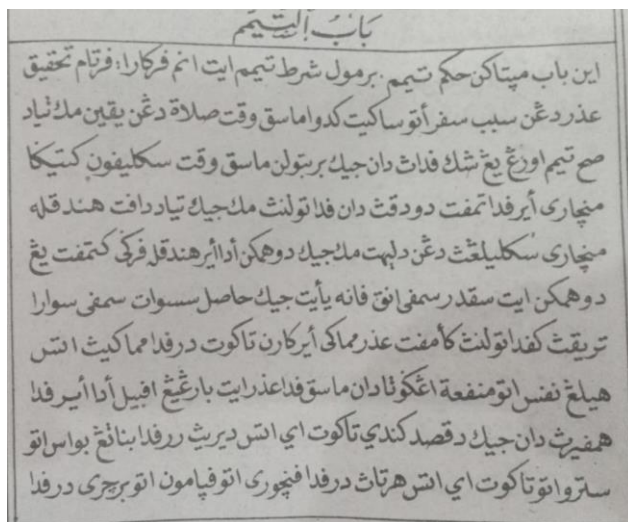 باب التيمم
اين باب مپتاکن حکم تيمم. برمول شرط تيمم ايت انم فرکارا؛ فرتام تحقيق
عذر دڠن سبب سفر أتو ساکيت کدوا ماسق وقت صلاة دڠن يقين مک تياد
صح تيمم اورڠ يڠ شک فداڽ دان جيک بربتولن ماسق وقت سکليفون کتيکا
منچاري أير فد اتمفت دودقڽ دان فد اتولنڽ مک جيک تياد دافت هندقله
منچاري سکليلڠڽ دڠن دليهت مک جيک دوهمکن أد اأير هندقله فرکي کتمفت يڠ
دوهمکن ايت سقدر سمفي انق فانه يأيت جيک حاصل سسوات سمفي سوارا
تريقڽ کفد اتولنڽ کأمفت عذر مماکي أير کارن تاکوت درفد امماکيڽ اتس
هيلڠ نفس اتو منفعة اڠکوتا دان ماسق فد اعذر ايت بارڠيڠ افبيل أد اأير فد
همفيرڽ دان جيک دقصد کندي تاکوت اي اتس ديريڽ درفد ابناتڠ بواس اتو
سترو اتو تاکوت اي اتس هرتاڽ درفد افنچوري اتو فپامون اتو برچري درفد